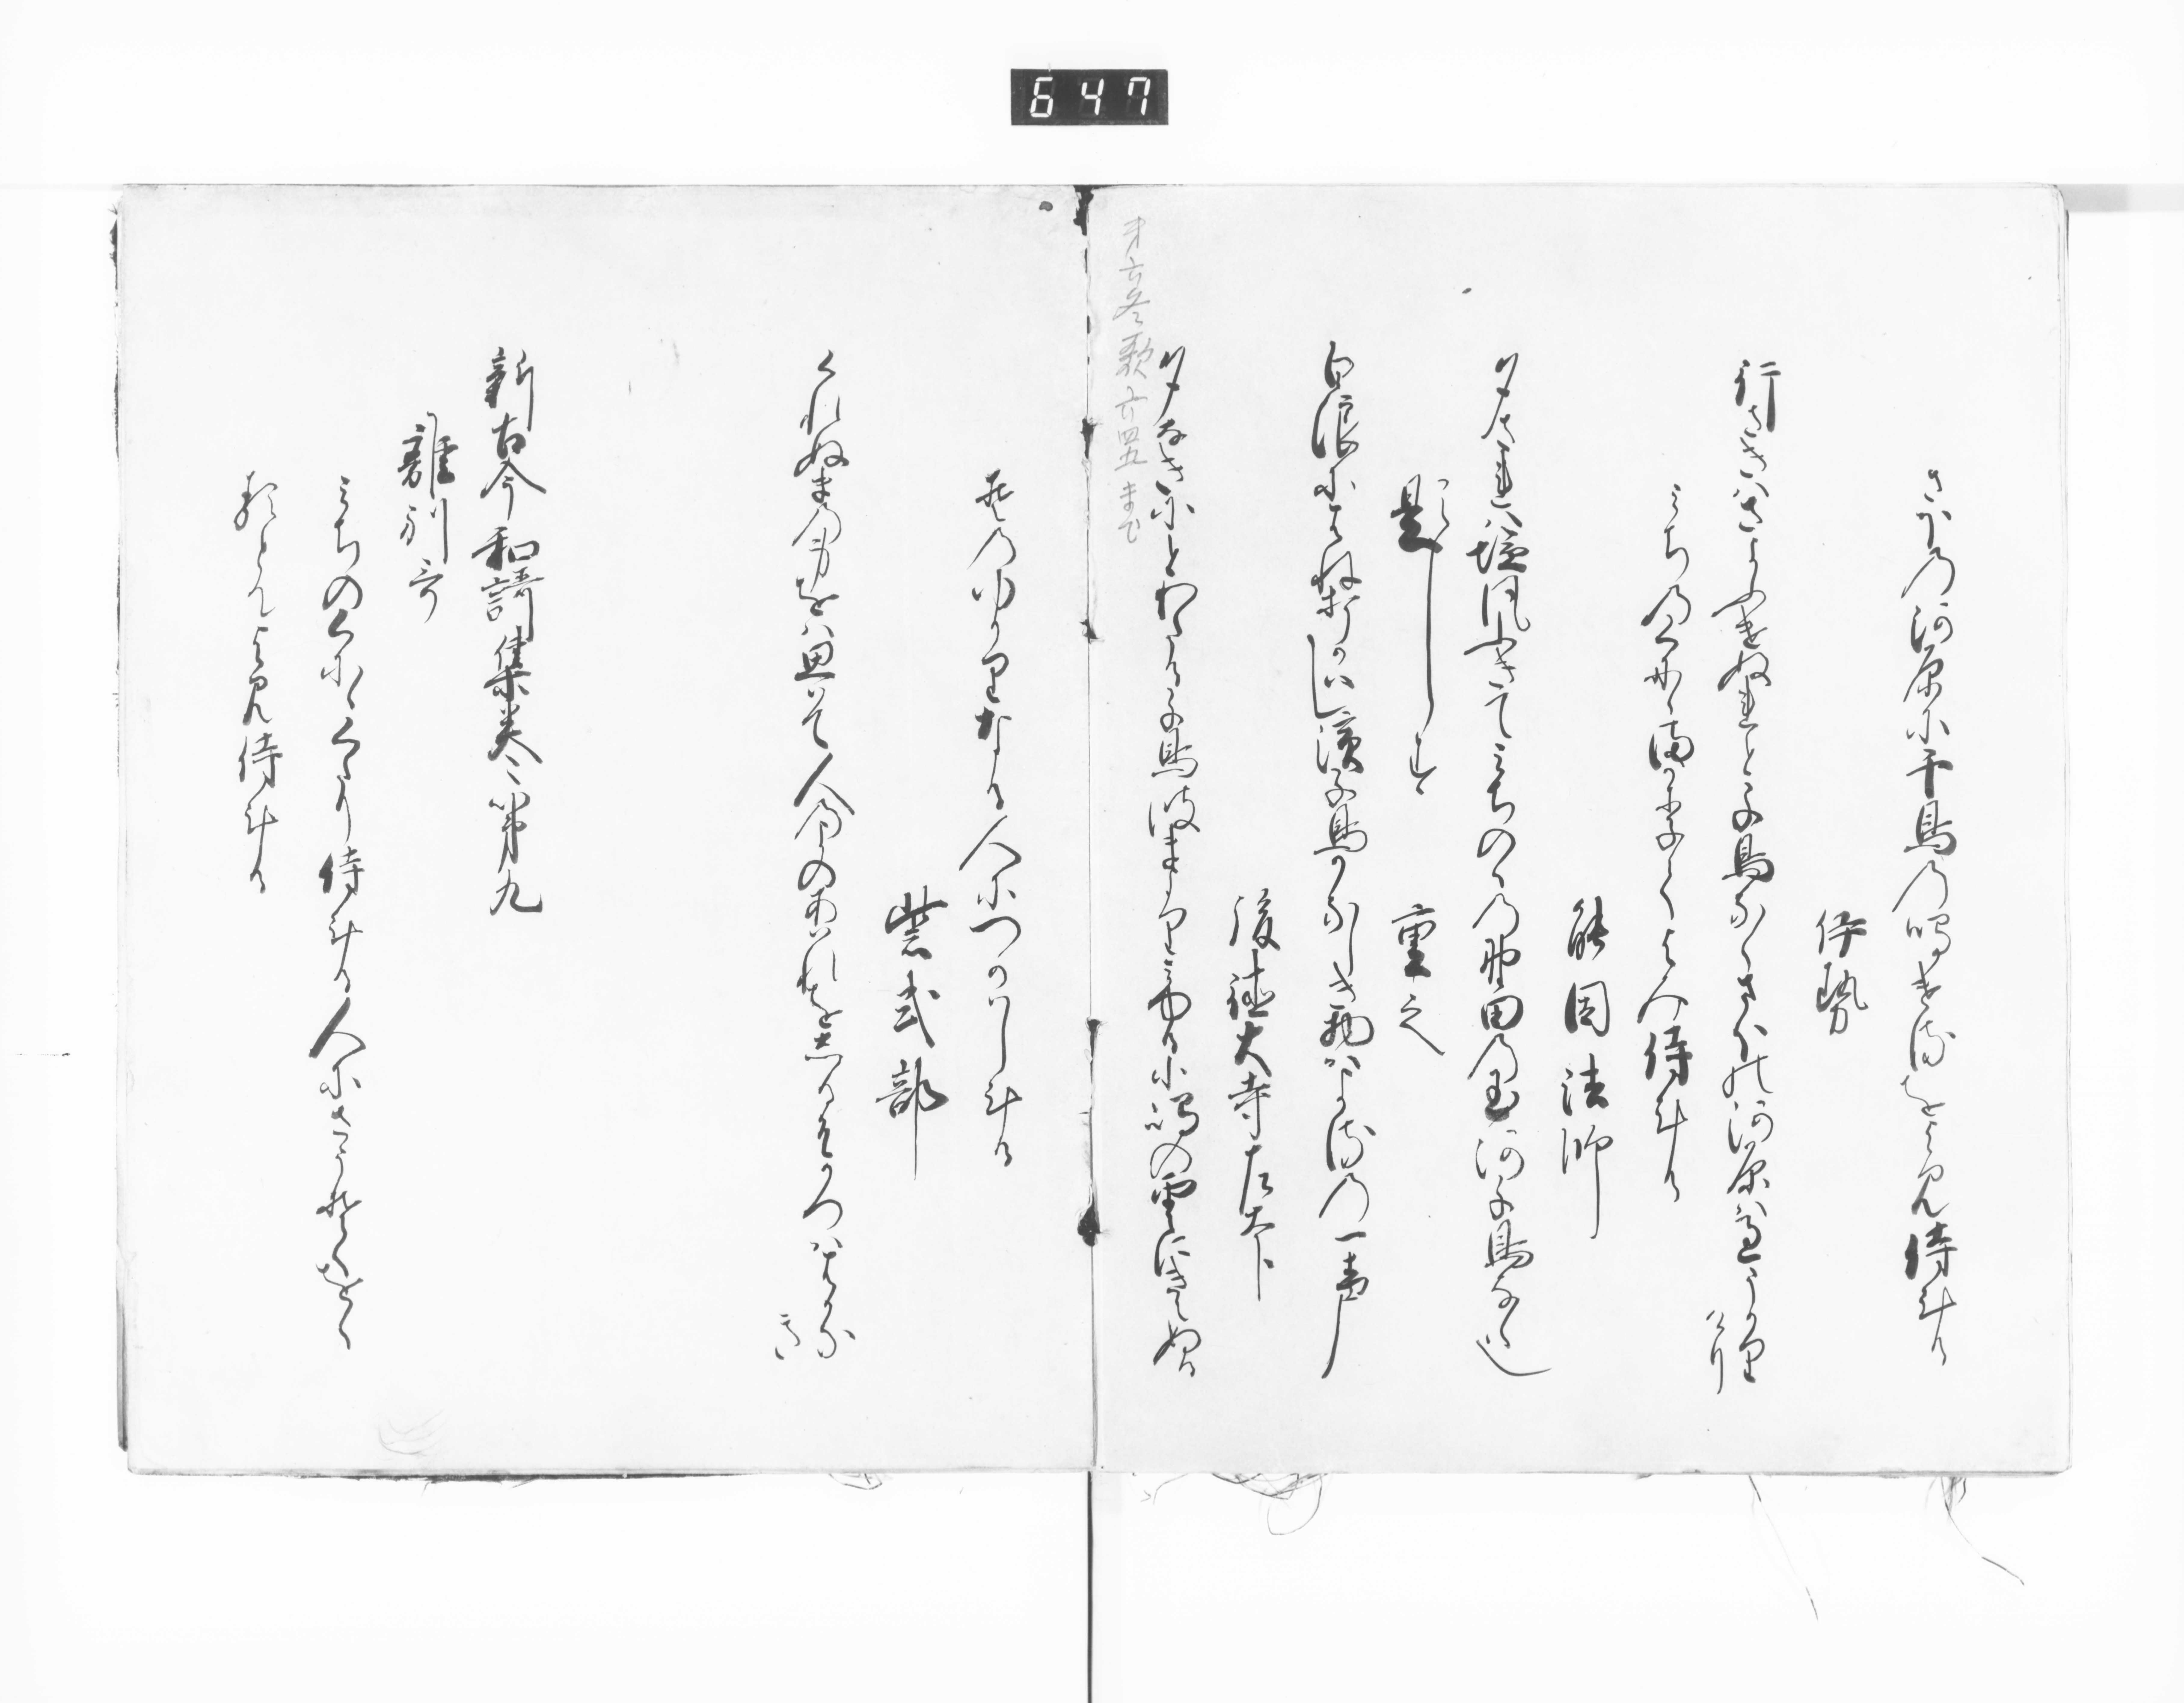 647
さほの河原に千鳥の鳴けるをよみ侍ける
伊勢
行さきはさよふけぬれと千鳥なくさほの河原はすきうかり
けり
みちのくにゝまかりける時よみ侍ける
能因法師
夕されは塩風こしてみちのくの野田の玉河千鳥なく也
題しらす
重之
白浪にはねうちかはし濱千鳥かなしき物はよるの一声
後徳大寺左大臣
夕なきにとわたる千鳥波まより見ゆる小嶋の雲にきえぬる
第六冬歌六四五まで
のゆかりなる人につかはしける
紫式部
くれぬまの身をは思はて人の世のあはれをしるそかつははかな
き
新古今和謌集巻第九
離別哥
みちのくにゝくたり侍ける人にさうそくをくる
とてよみ侍ける